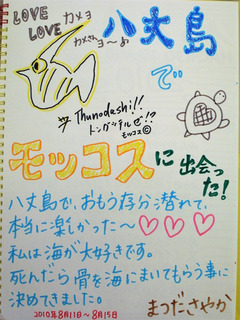 LOVE カメヨ
LOVE カメさん
ヨ〜ん
八丈島
で
Thunodashi!!
トンガッテルゼ!?
モッコス©
モッコスに出会った!
八丈島で、おもう存分潜れて、
本当に楽しかった〜♡♡♡
私は海が大好きです。
死んだら骨を海にまいてもらう事に
決めてきました。
2010年8月11日〜8月15日
まつださやか